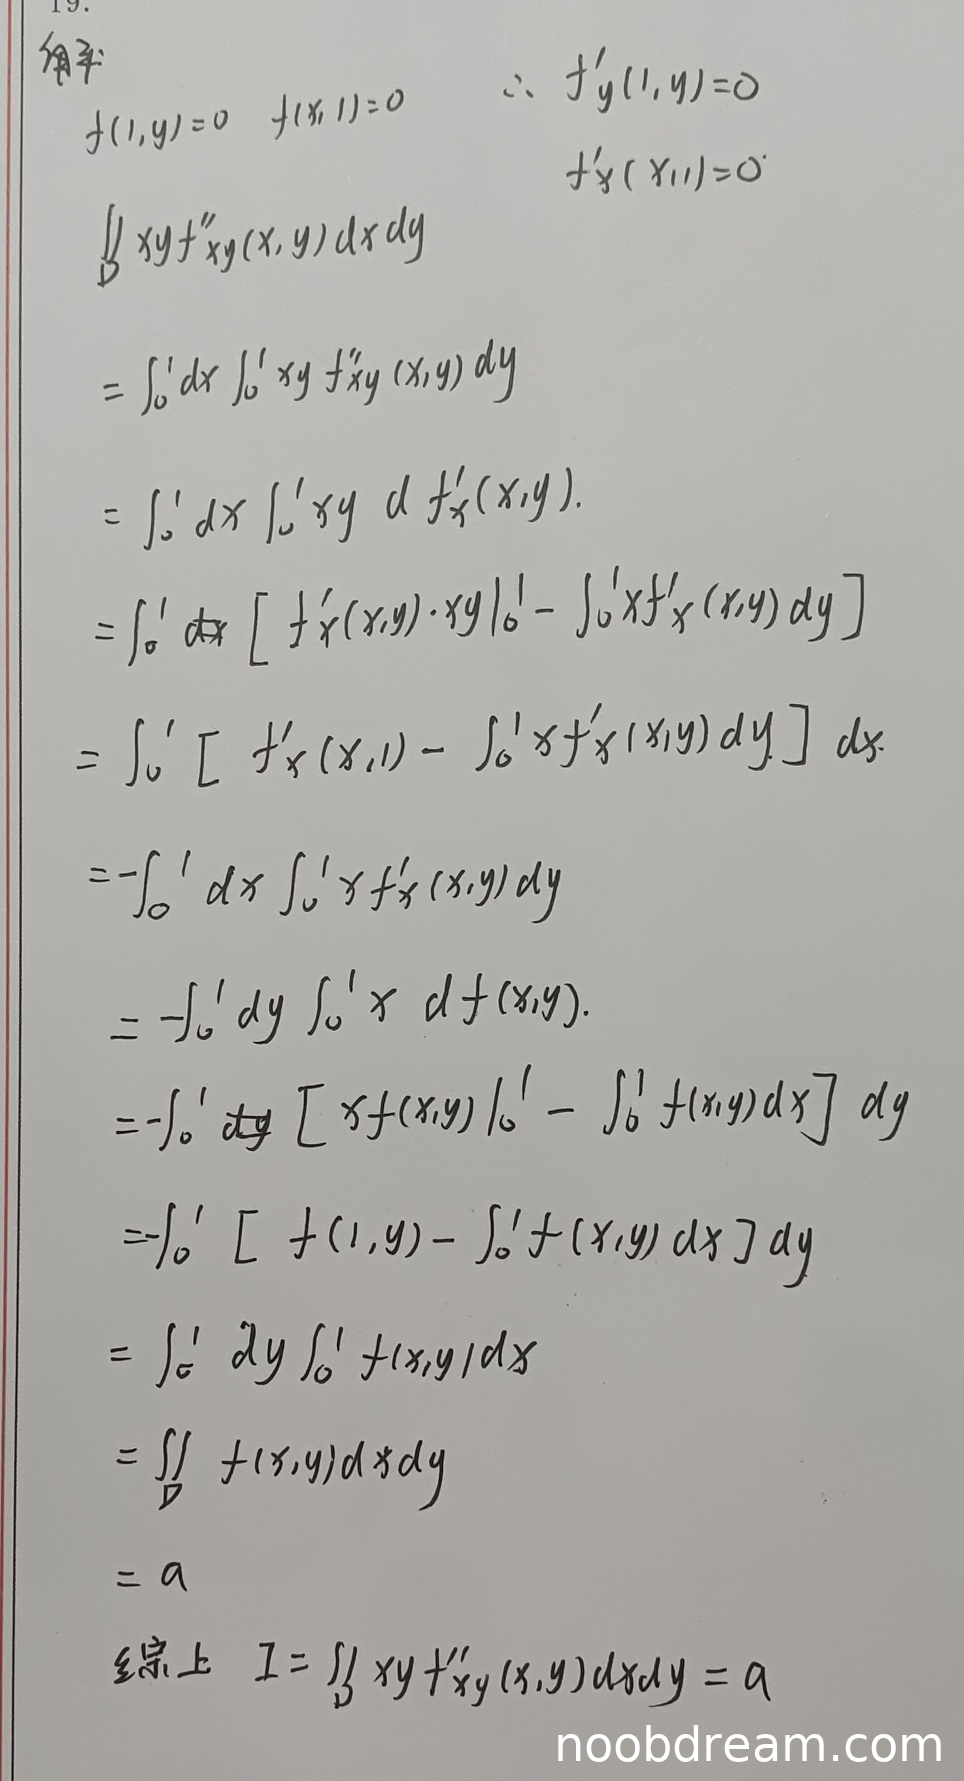 19.
解
f(1,y)=0 f(x,1)=0 ∴ f'y(1,y)=0
f'x(x,1)=0
∬D xyf''xy(x,y)dxdy
=∫₀¹dx∫₀¹xy f''xy(x,y)dy
=∫₀¹dx∫₀¹xy d f'x(x,y).
=∫₀¹ [f'x(x,y)·xy|₀¹-∫₀¹xf'x(x,y)dy]
=∫₀¹[f'x(x,1)-∫₀¹xf'x(x,y)dy]dx.
=-∫₀¹dx∫₀¹xf'x(x,y)dy
=-∫₀¹dy∫₀¹x df(x,y).
=-∫₀¹ [xf(x,y)|₀¹-∫₀¹f(x,y)dx]dy
=-∫₀¹[f(1,y)-∫₀¹f(x,y)dx]dy
=∫₀¹dy∫₀¹f(x,y)dx
=∬D f(x,y)dxdy
=a
综上 I=∬D xyf''xy(x,y)dxdy=a
noobdream.com